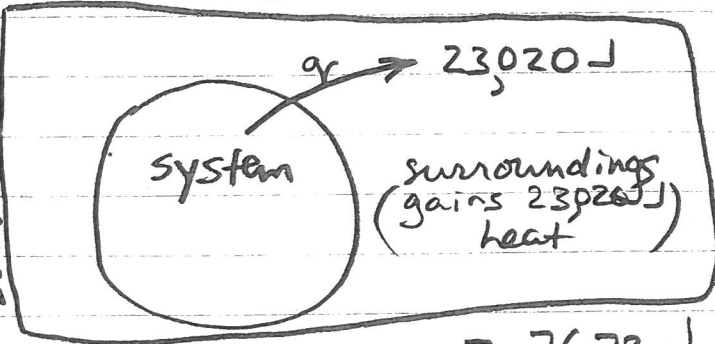 q → 23,020 J
system
surroundings
(gains 23,020 J)
heat